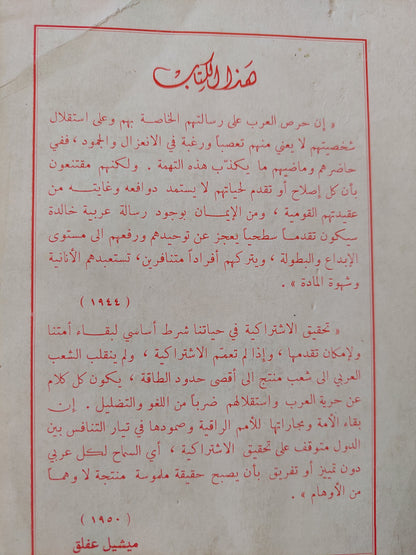 هذا الكتاب
« إن حرص العرب على رسالتهم الخاصة بهم وعلى استقلال
شخصيتهم لا يعني منهم تعصباً ورغبة في الانعزال والجمود ، ففي
حاضرهم وماضيهم ما يكذّب هذه التهمة . ولكنهم مقتنعون
بأن كل إصلاح أو تقدم لحياتهم لا يستمد دوافعه وغايته من
عقيدتهم القومية ، ومن الإيمان بوجود رسالة عربية خالدة
سيكون تقدماً سطحياً يعجز عن توحيدهم ورفعهم الى مستوى
الإبداع والبطولة ، ويتركهم أفراداً متنافرين، تستعبدهم الأنانية
وشهوة المادة » .
( ١٩٤٤ )
« تحقيق الاشتراكية في حياتنا شرط أساسي لبقاء أمتنا
ولإمكان تقدمها ، وإذا لم تعمّم الاشتراكية ، ولم ينقلب الشعب
العربي الى شعب منتج الى أقصى حدود الطاقة ، يكون كل كلام
عن حرية العرب واستقلالهم ضرباً من اللغو والتضليل . إن
بقاء الأمة ومجاراتها للأمم الراقية وصمودها في تيار التنافس بين
الدول متوقف على تحقيق الاشتراكية ، أي السماح لكل عربي
دون تمييز أو تفريق بأن يصبح حقيقة ملموسة منتجة لا وهماً
من الأوهام » .
( ١٩٥٠ )
ميشيل عفلق